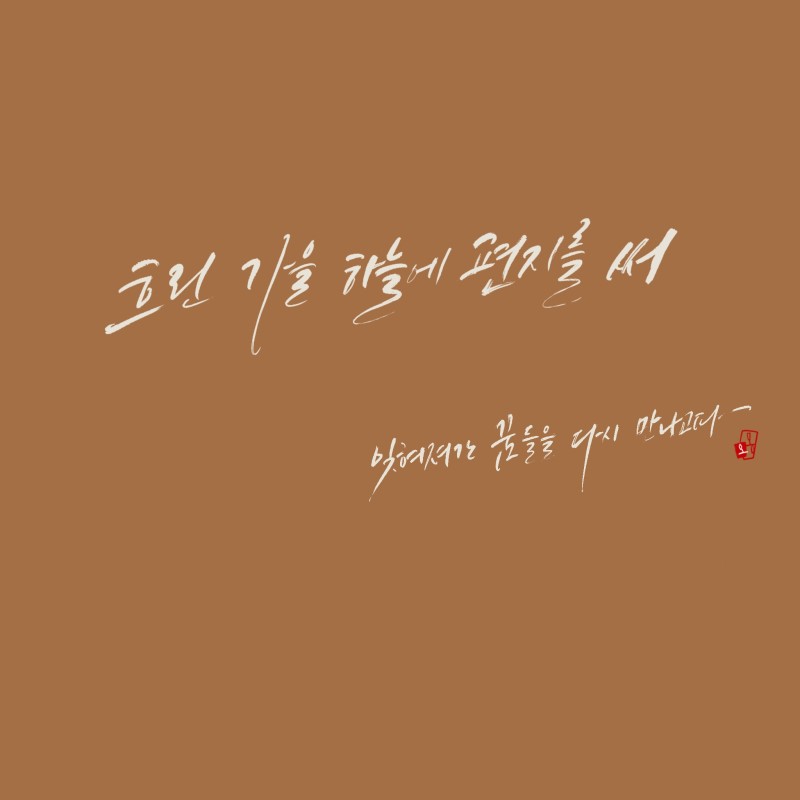 흐린 가을 하늘에 편지를 써
잊혀져간 꿈들을 다시 만나고파